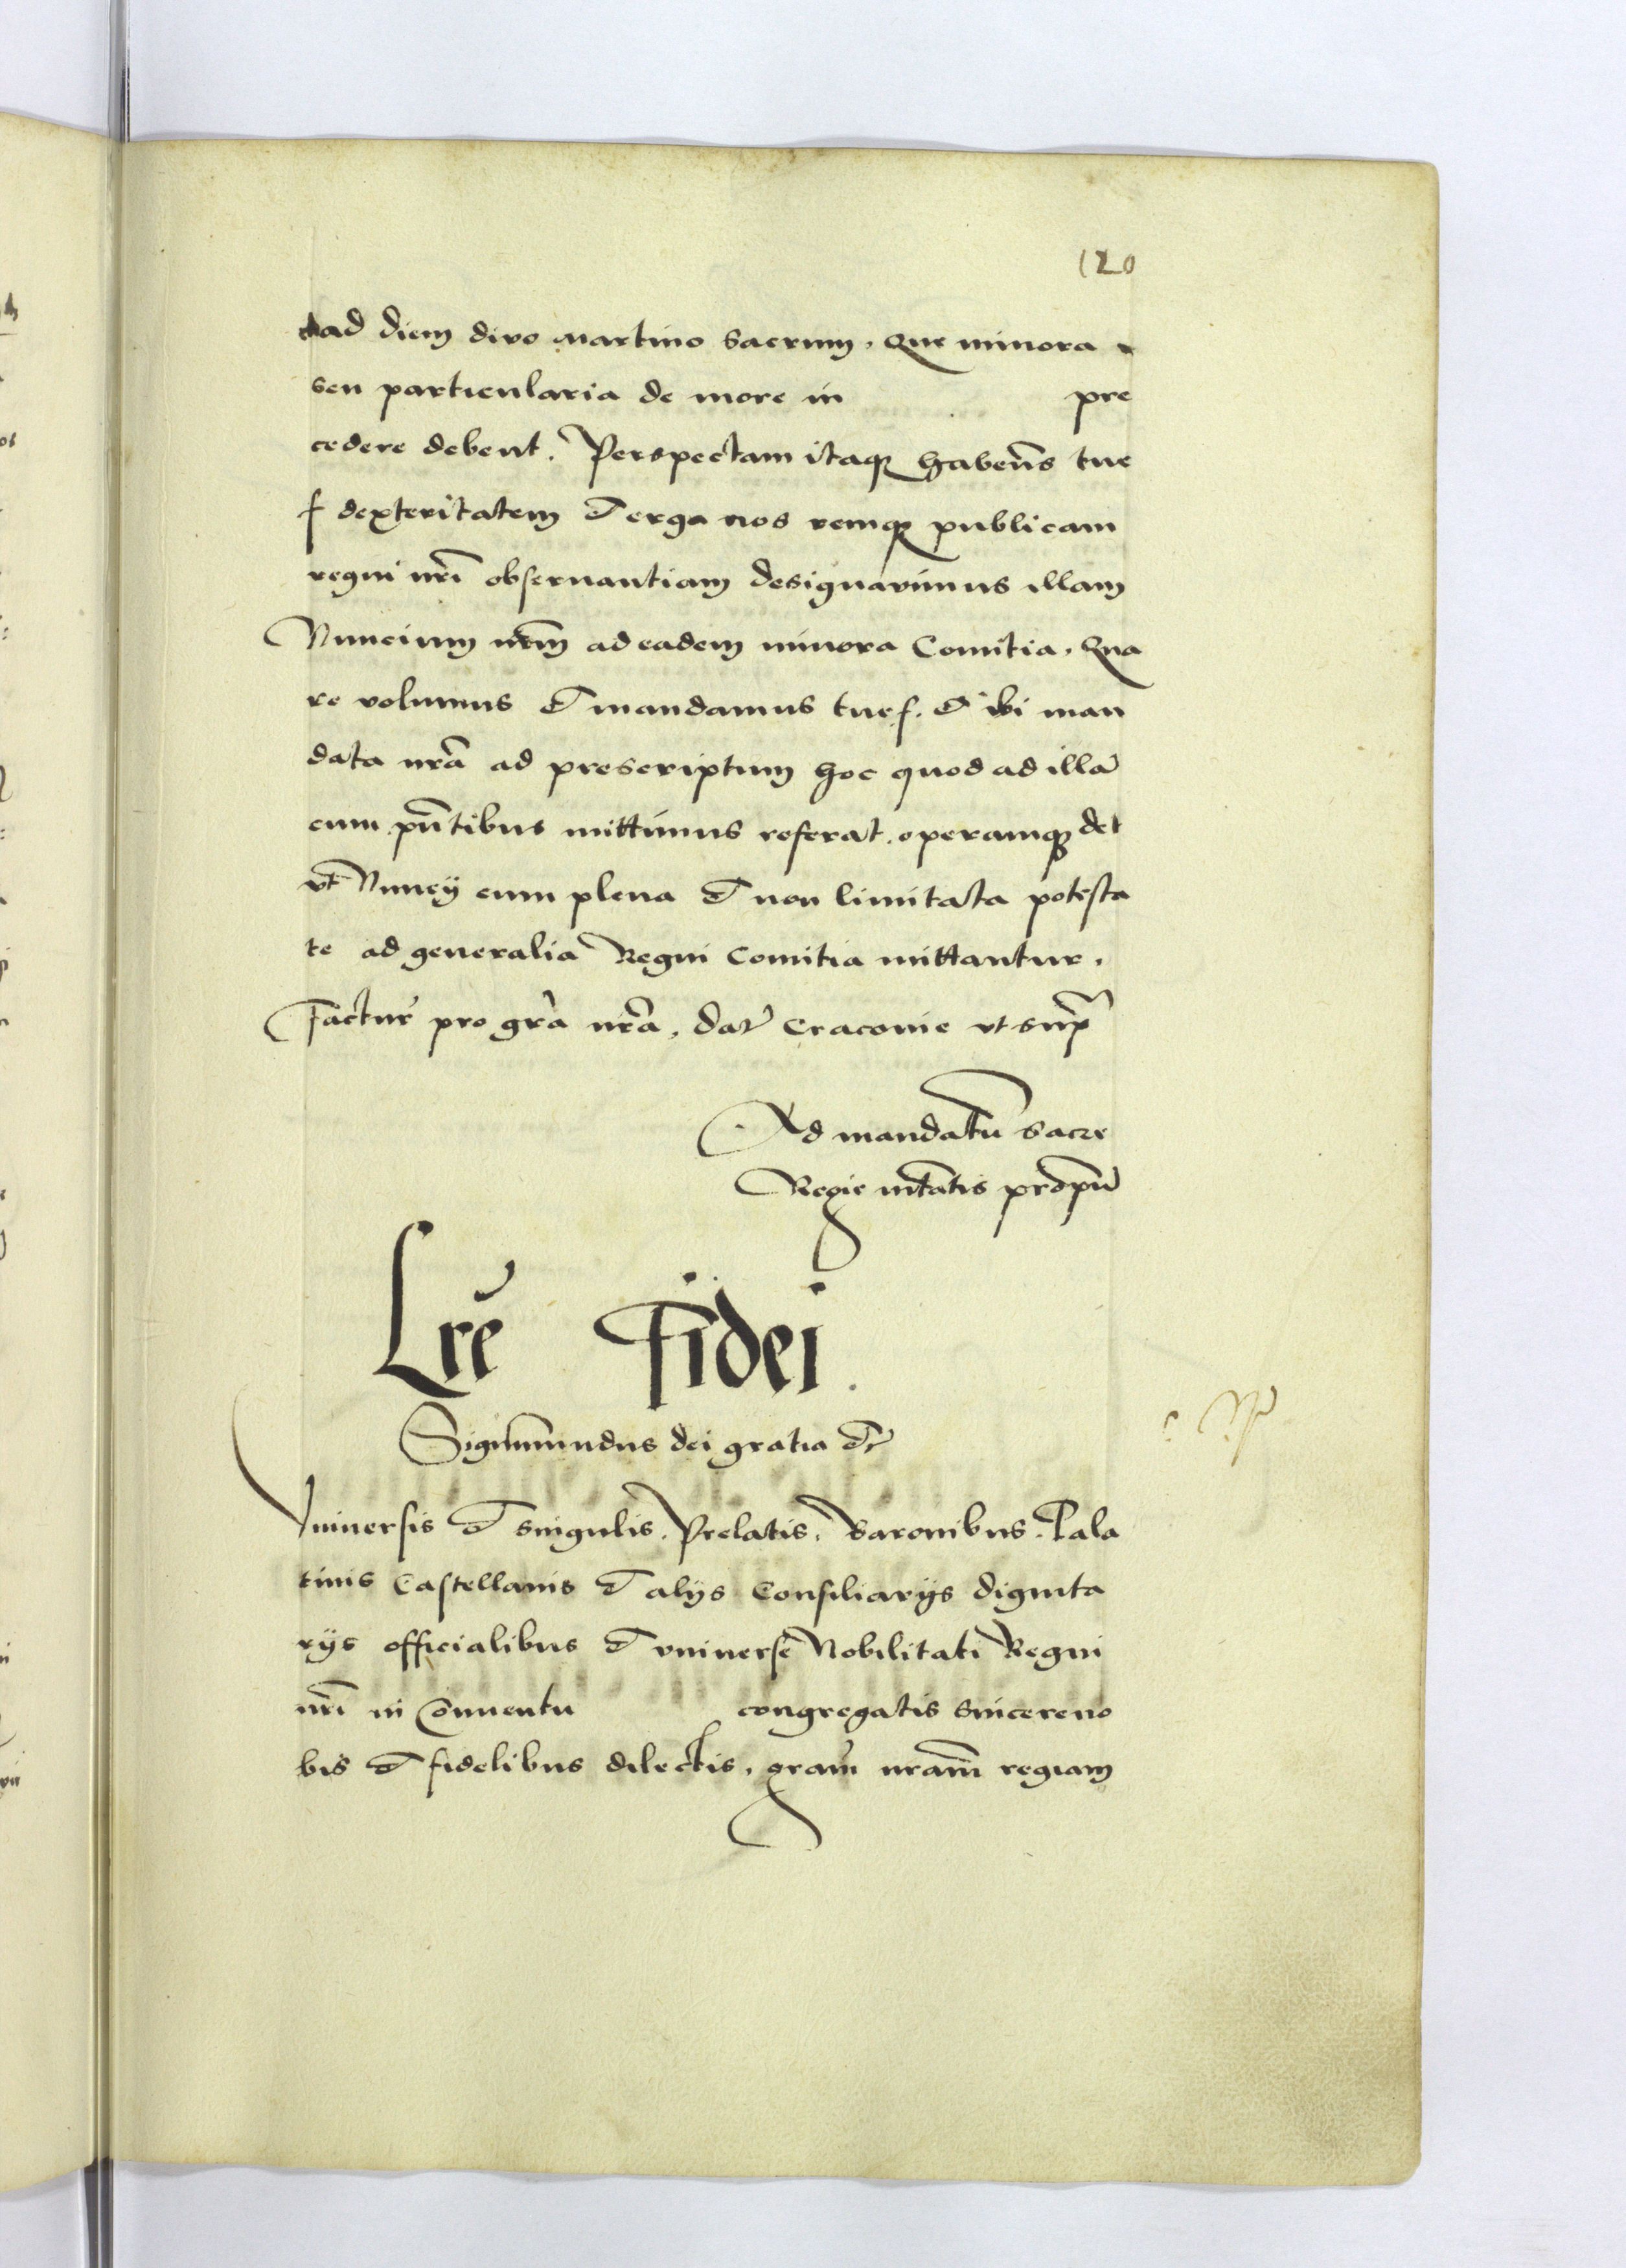 120
ad diem divo Martino sacrum. Que minora
seu particularia de more in pre
cedere debent. Perspectam itaque habens̄ tue
f dexteritatem et erga nos remque publicam
regni nr̄i observantiam designavimus illam
Nuncium nr̄m ad eadem minora Comitia. Qua
re volumus et mandamus tue f. et ibi man
data nr̄a ad prescriptum hoc quod ad illā
cum pn̄tibus mittimus referat. operamque det
vt Nuncij cum plena et non limitata potesta
te ad generalia Regni Comitia mittantur.
Factur̄ pro gr̄a nr̄a. dat̄ Cracovie vt supr̄
Ad mandatū sacre
Regie mt̄atis propriū
Lr̄e Fidei.
Sigismundus dei gratia etc̄
Vniversis et singulis. Prelatis. Baronibus. Pala
tinis Castellanis et alijs Consiliarijs dignita
rijs officialibus et vniverse Nobilitati Regni
nr̄i in Conventu congregatis sincere no
bis et fidelibus dilectis. gr̄am nr̄am regiam